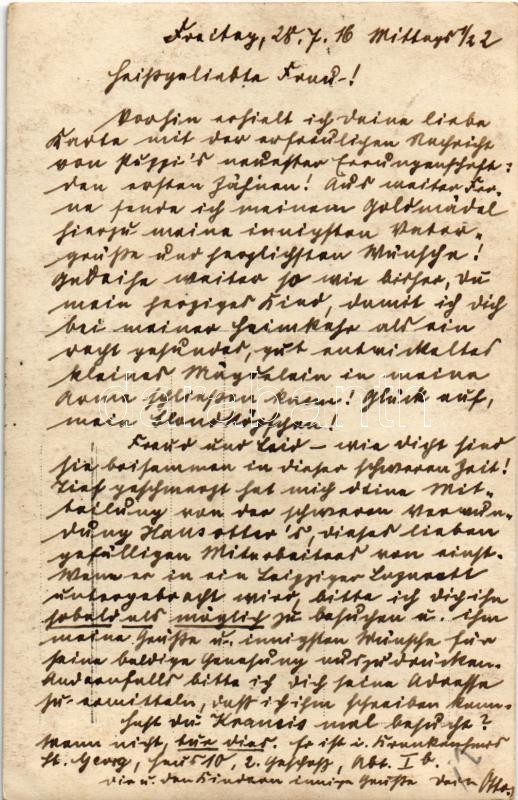 Freitag, 28.7.16 Mittags 1/2 2
Heißgeliebte Frau!
Vorhin erhielt ich deine liebe
Karte mit der erfreulichen Nachricht
von Puppi's neuester Errungenschaft:
den ersten Zähnen! Aus weiter Fer-
ne sende ich meinem Goldmädel
hierzu meine innigsten Vater-
grüße und herzlichsten Wünsche!
Gedeihe weiter so wie bisher, du
mein herziges Kind, damit ich dich
bei meiner Heimkehr als ein
recht gesundes, gut entwickeltes
kleines Mägdelein in meine
Arme schließen kann! Glück auf,
mein Blondköpfchen!
Freud und Leid – wie dicht sind
sie beisammen in dieser schweren Zeit!
Tief geschmerzt hat mich deine Mit-
teilung von der schweren Verwun-
dung Hansotter's, dieses lieben
gefälligen Mitarbeiters von einst.
Wenn er in ein Leipziger Lazarett
untergebracht wird, bitte ich dich ihn
sobald als möglich zu besuchen u. ihm
meine Grüße u. innigsten Wünsche für
seine baldige Genesung auszudrücken.
Andernfalls bitte ich dich seine Adresse
zu ermitteln, daß ich ihm schreiben kann.
Hast du mal besucht?
Wenn nicht, tue dies. Er ist i. Krankenhaus
St. Georg, Haus 10, 2. Geschoß, Abt. I b.
Dir u. den Kindern innige Grüße Dein Otto.